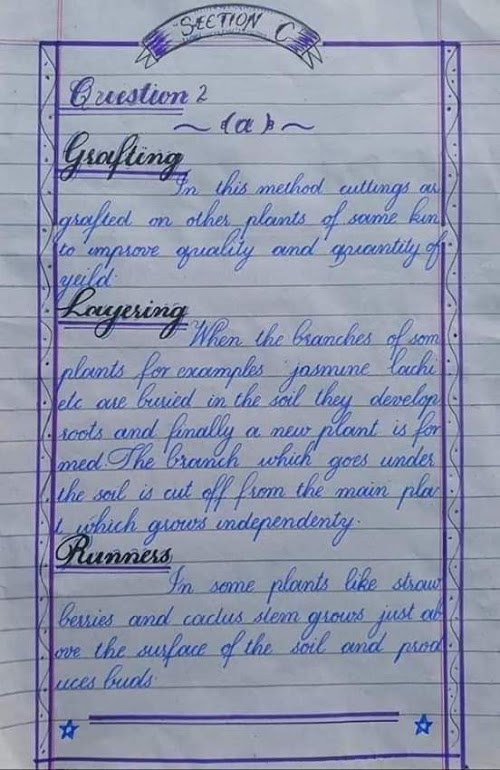 SECTION C
Question 2
~ (a) ~
Grafting
In this method cuttings ar
grafted on other plants of same kin
to improve quality and quantity of
yeild.
Layering
When the branches of som
plants for examples jasmine lachi
etc are buried in the soil they develop
roots and finally a new plant is for
med. The branch which goes under
the soil is cut off from the main pla
t which grows independenty.
Runners
In some plants like straw
berries and cactus stem grows just ab
ove the surface of the soil and prod
uces buds.